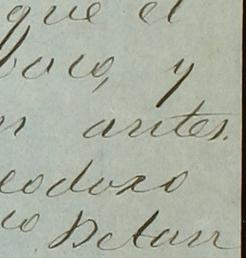 que el
boco, y
n antes.
eodoro
io Betan